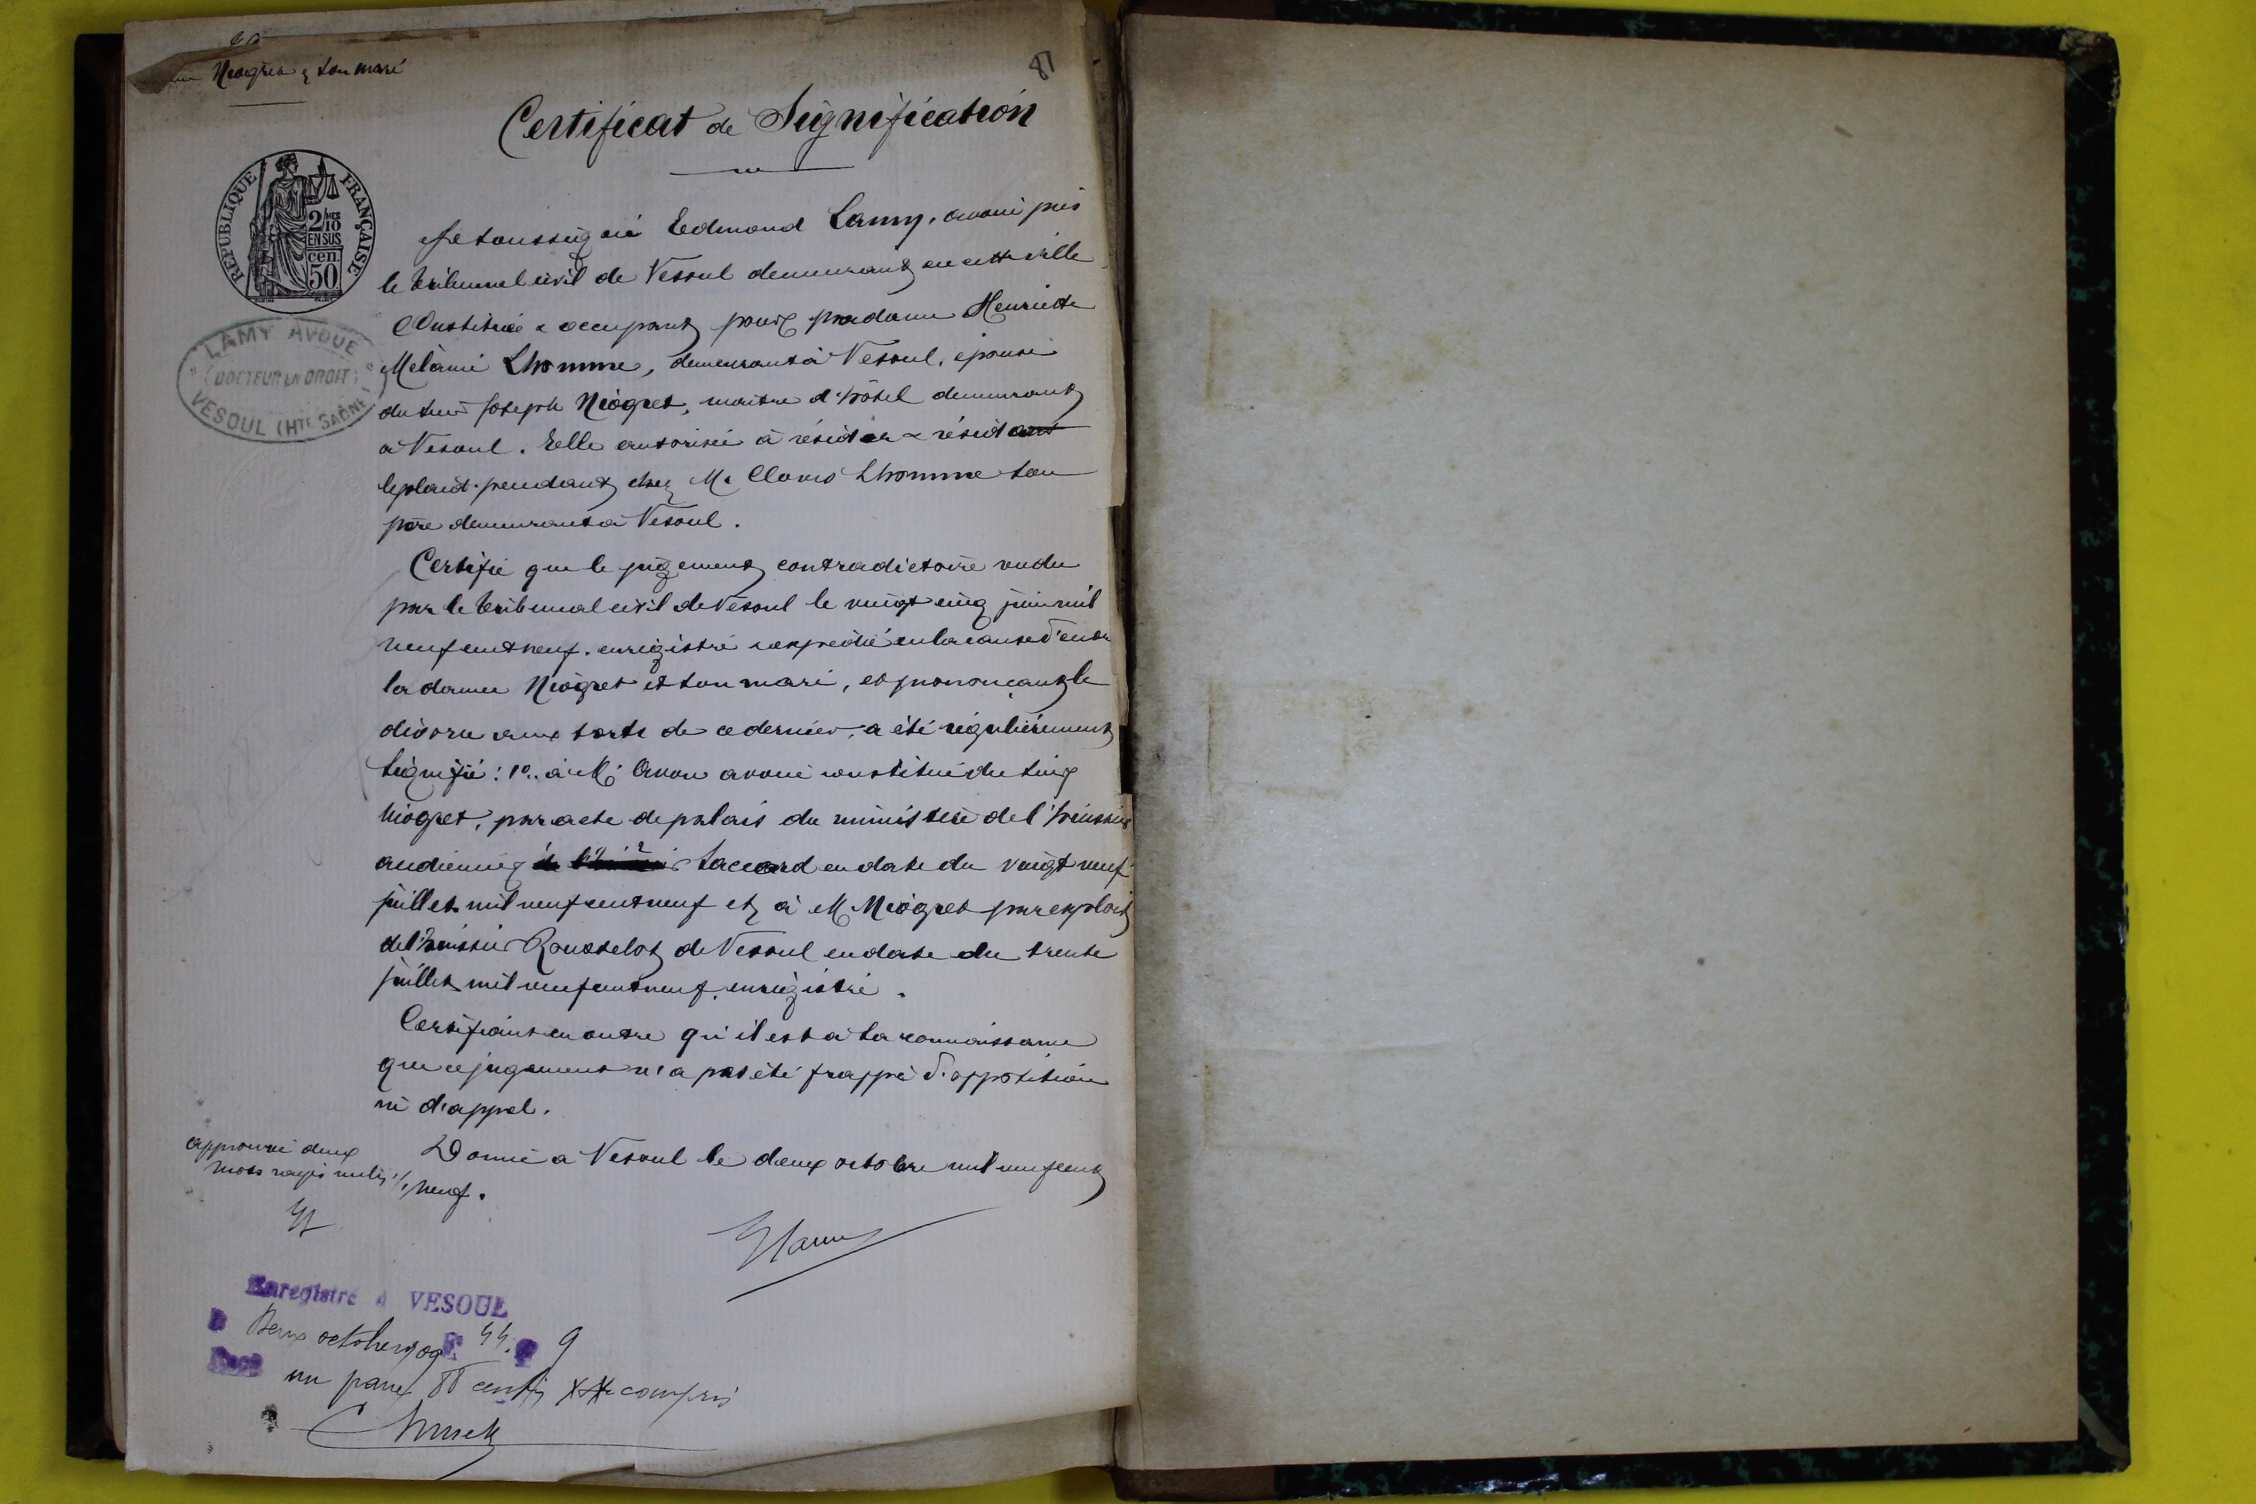 Niogret & son mari
87
Certificat de Signification
RÉPUBLIQUE FRANÇAISE
2/10
EN SUS
cen.
50
LAMY AVOUÉ
DOCTEUR EN DROIT
VESOUL (HTE SAÔNE)
Je soussigné Edmond Lamy, avoué près
le tribunal civil de Vesoul demeurant en cette ville
Constitué & occupant pour madame Henriette
Mélanie Lhomme, demeurant à Vesoul, épouse
du sieur Joseph Niogret, maître d'hôtel demeurant
à Vesoul. Elle autorisée à résider & résidant
le plaid pendant chez Mr Clovis Lhomme son
père demeurant à Vesoul.
Certifie que le jugement contradictoire rendu
par le tribunal civil de Vesoul le vingt cinq juin mil
neuf cent neuf. enregistré & expédié en la cause d'entre
la dame Niogret et son mari, et prononçant le
divorce aux torts de ce dernier, a été régulièrement
signifié : 1º. à Me avoué constitué du sieur
Niogret, par acte de palais du ministère de l'huissier
audiencier Saccard en date du vingt neuf
juillet mil neuf cent neuf et à M. Niogret par exploit
de l'huissier Rousselot de Vesoul en date du trente
juillet mil neuf cent neuf, enregistré.
Certifiant en outre qu'il est à sa connaissance
que ce jugement n'a pas été frappé d'opposition
ni d'appel.
Donné à Vesoul le deux octobre mil neuf cent
neuf.
approuvé deux
mots rayés nuls ./.
ELamy
Enregistré à VESOUL
le Deux octobre 1909 F 44. C 9
Reçu un franc 88 centi compris